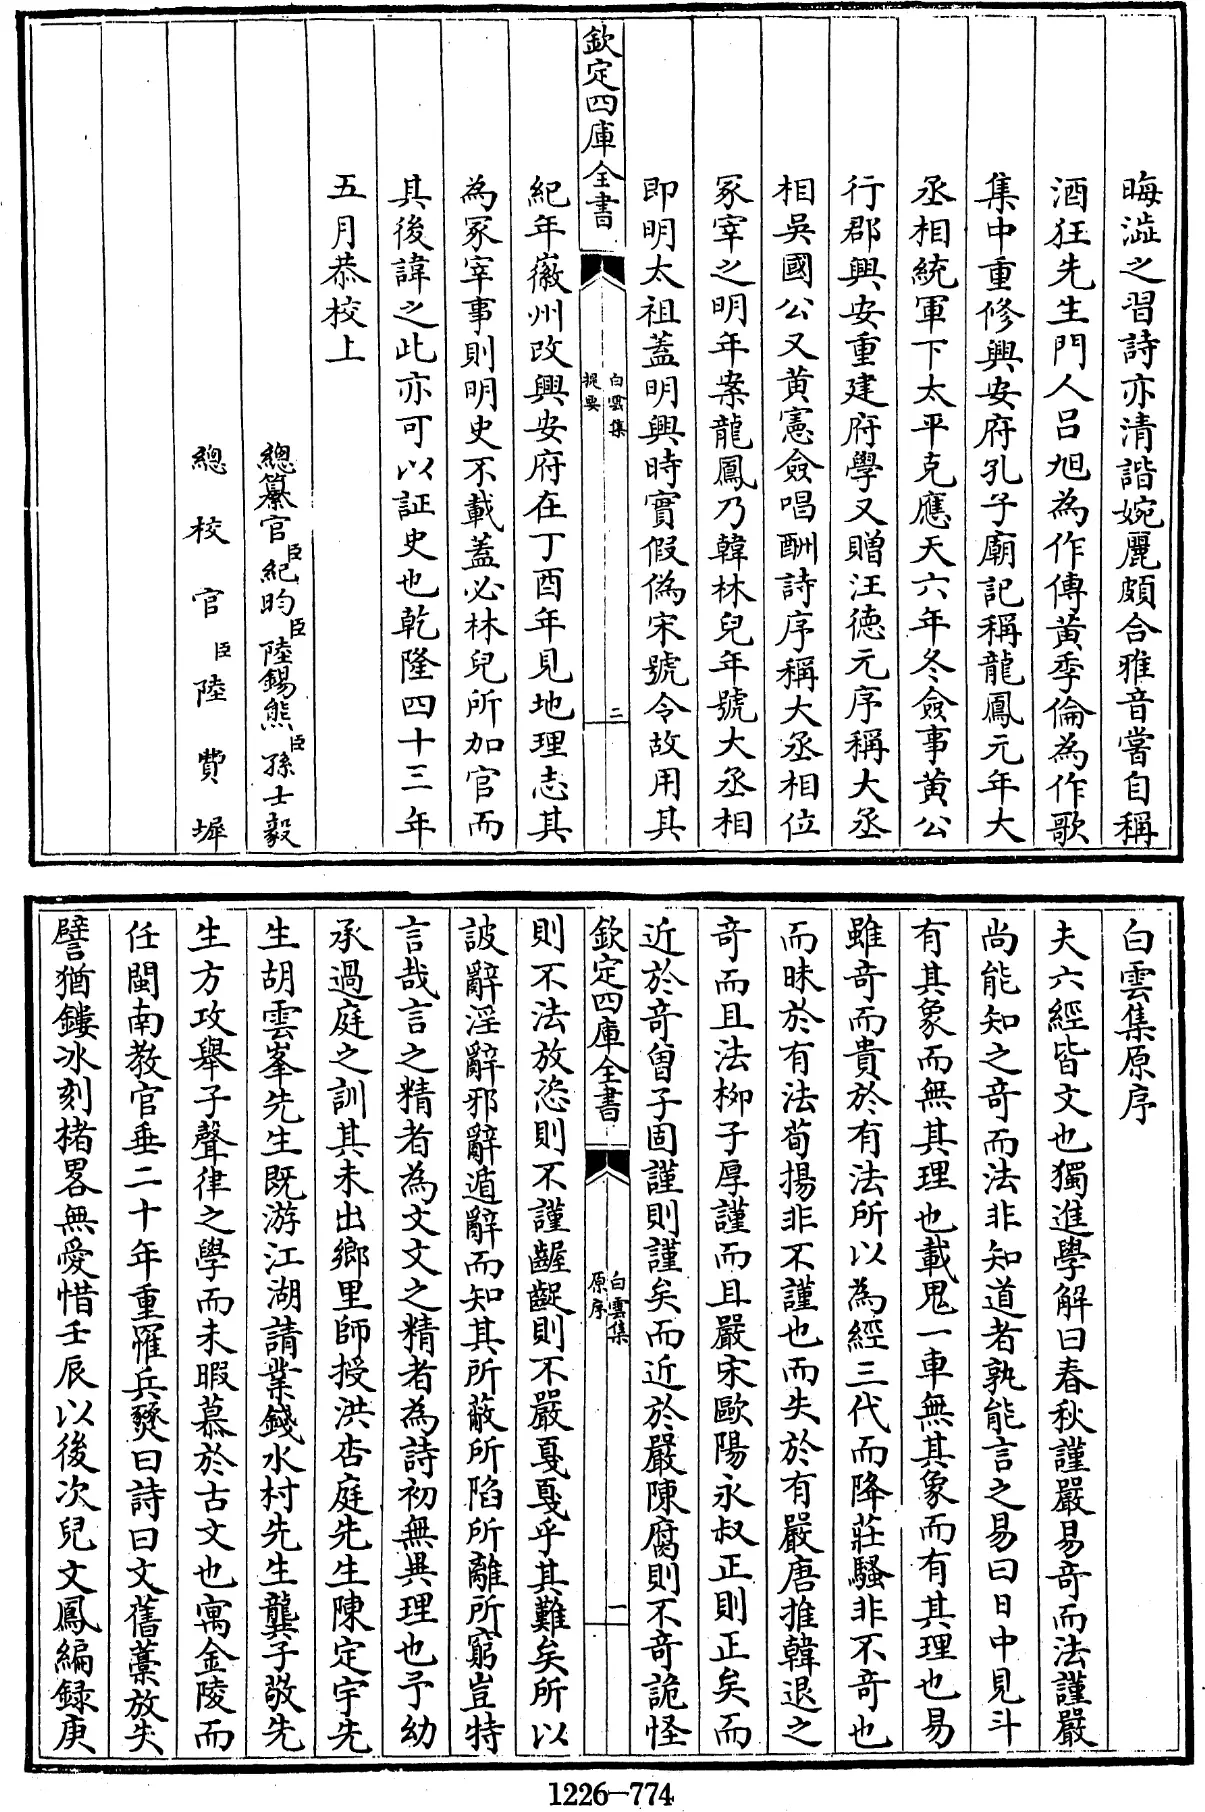 晦澁之習詩亦清諧婉麗頗合雅音嘗自稱
酒狂先生門人呂旭為作傳黃季倫為作歌
集中重修興安府孔子廟記稱龍鳳元年大
丞相統軍下太平克應天六年冬僉事黃公
行郡興安重建府學又贈汪德元序稱大丞
相吳國公又黃憲僉唱酬詩序稱大丞相位
冢宰之明年案龍鳳乃韓林兒年號大丞相
即明太祖蓋明興時實假偽宋號令故用其
欽定四庫全書
白雲集
提要
二
紀年徽州改興安府在丁酉年見地理志其
為冢宰事則明史不載蓋必林兒所加官而
其後諱之此亦可以証史也乾隆四十三年
五月恭校上
總纂官臣紀昀臣陸錫熊臣孫士毅
總校官臣陸費墀
白雲集原序
夫六經皆文也獨進學解曰春秋謹嚴易奇而法謹嚴
尚能知之奇而法非知道者孰能言之易曰日中見斗
有其象而無其理也載鬼一車無其象而有其理也易
雖奇而貴於有法所以為經三代而降莊騷非不奇也
而昧於有法荀揚非不謹也而失於有嚴唐推韓退之
奇而且法柳子厚謹而且嚴宋歐陽永叔正則正矣而
近於奇曾子固謹則謹矣而近於嚴陳腐則不奇詭怪
欽定四庫全書
白雲集
原序
一
則不法放恣則不謹齷齪則不嚴戛戛乎其難矣所以
詖辭淫辭邪辭遁辭而知其所蔽所陷所離所窮豈特
言哉言之精者為文文之精者為詩初無異理也予幼
承過庭之訓其未出鄉里師授洪杏庭先生陳定宇先
生胡雲峯先生既游江湖請業錢水村先生龔子敬先
生方攻舉子聲律之學而未暇慕於古文也寓金陵而
任閩南教官垂二十年重罹兵燹曰詩曰文舊藁放失
譬猶鏤冰刻楮畧無愛惜壬辰以後次兒文鳳編錄庚
1226-774